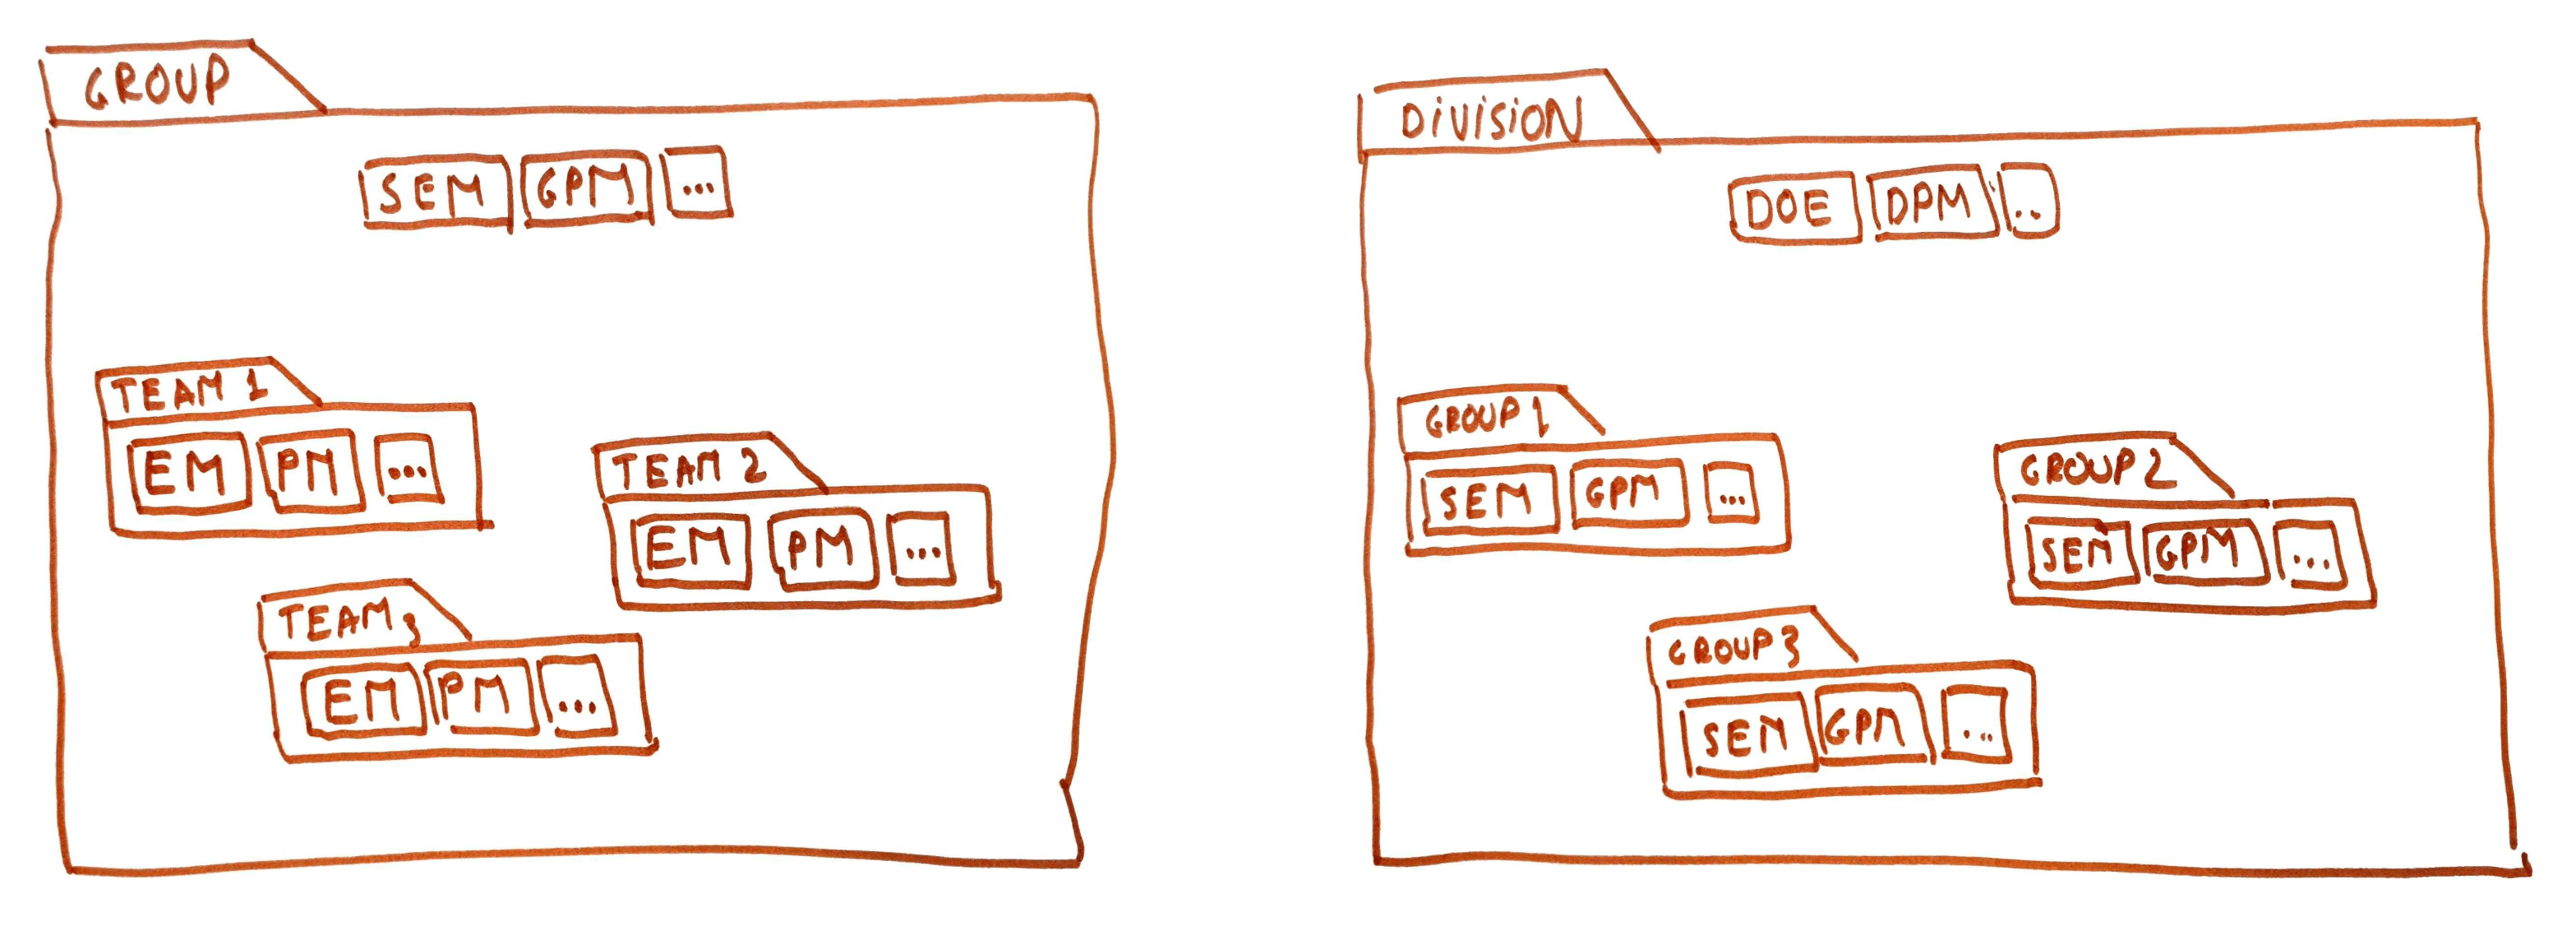 GROUP
SEM GPM ...
TEAM 1
EM PM ...
TEAM 2
EM PM ...
TEAM 3
EM PM ...
DiViSiON
DOE DPM ..
GROUP 1
SEM GPM ...
GROUP 2
SEM GPM ...
GROUP 3
SEM GPM ...